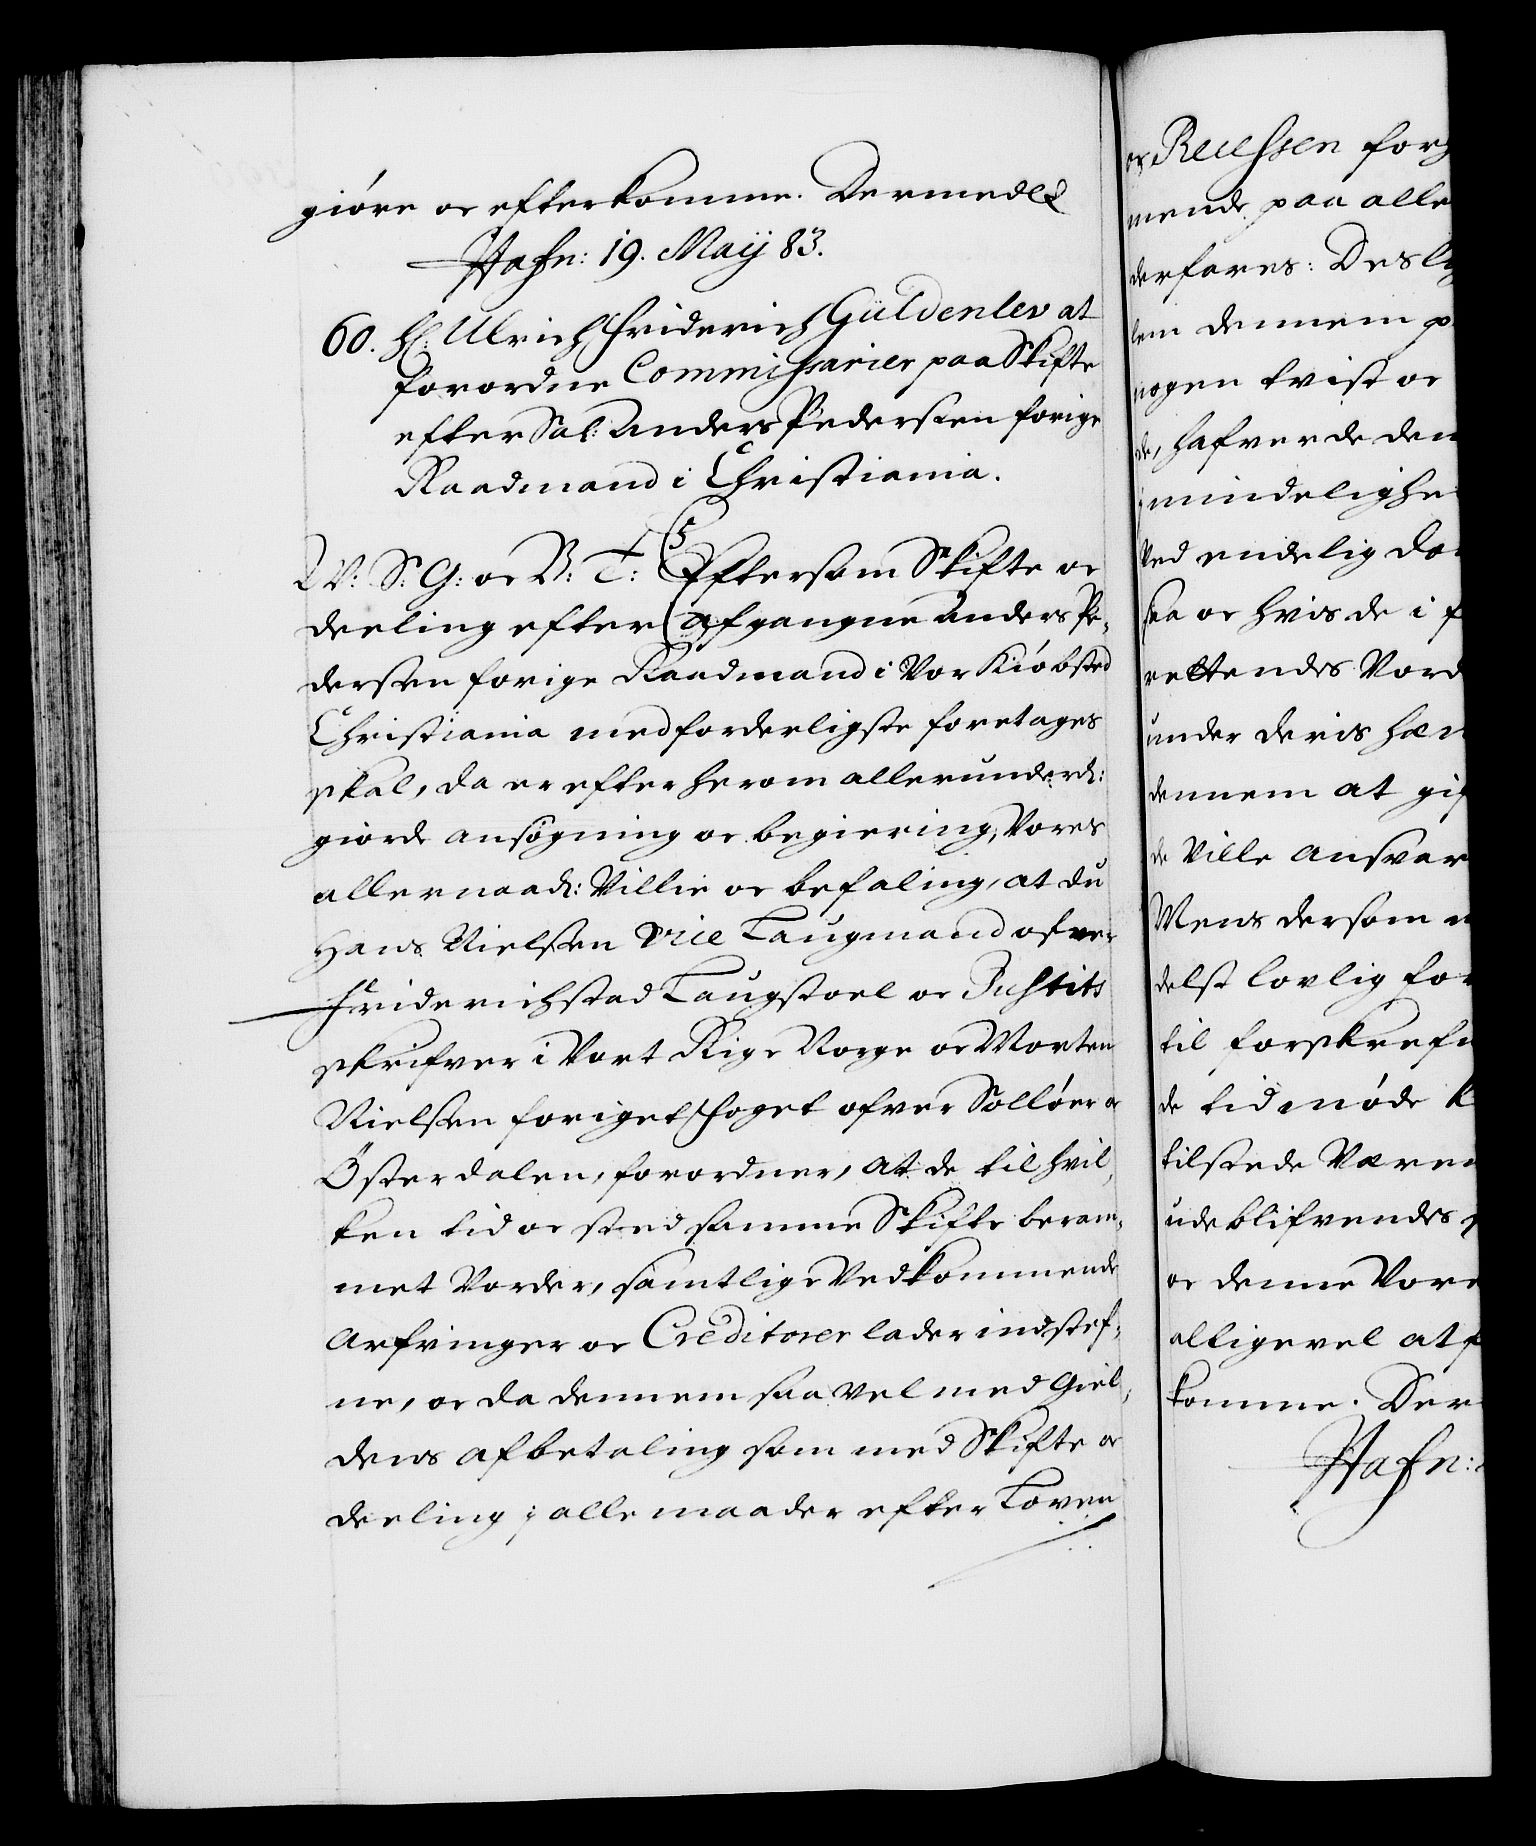 giöre oc efterkomme. Dermed &
Hafn: 19. Maÿ 83.
60. H: Ulrich Friderich Güldenlev at
forordne Commissarier paa Skifte
efter Sal: Anders Pedersen forige
Raadmand i Christiania.
W: S: G: oc B: T: Eftersom Skifte oc
deeling efter afgangne Anders Pe,
dersen forige Raadmand i Vor Kiöbsted
Christiania med forderligste foretages
skal, da er efter herom allerunderd:
giorde ansögning oc begiering, Vores
allernaad: Villie oc befaling, at du
Hans Nielsen Vice Laugmand ofver
Friderichstad Laugstoel oc Justits
skrifver i Vort Rige Norge oc Morten
Nielsen foriget Foget ofver Sollöer oc
Österdalen, forordner, at de til hvil,
ken tid oc sted samme Skifte beram,
met Vorder, samtlige Vedkommende
Arfvinger oc Creditorer lader indstef,
ne, oc da dennem saa vel med Giel,
dens afbetaling som med Skifte oc
deeling i alle maader efter Loven
oc Recessen for
mende paa alle
derfares: Des
lem dennem p
nogen tvist oc
de, hafver de dem
mindelighe
Ved endelig do
saa oc hvis de i f
rettendes Vord
under deris hæn
dennem at gif
de Ville ansvar
Mens dersom
delst lovlig for
til forskrefn
de tid möde k
tilstede Væren
udeblifvendes
oc denne Vore
alligevel at f
komme. Der
Hafn: